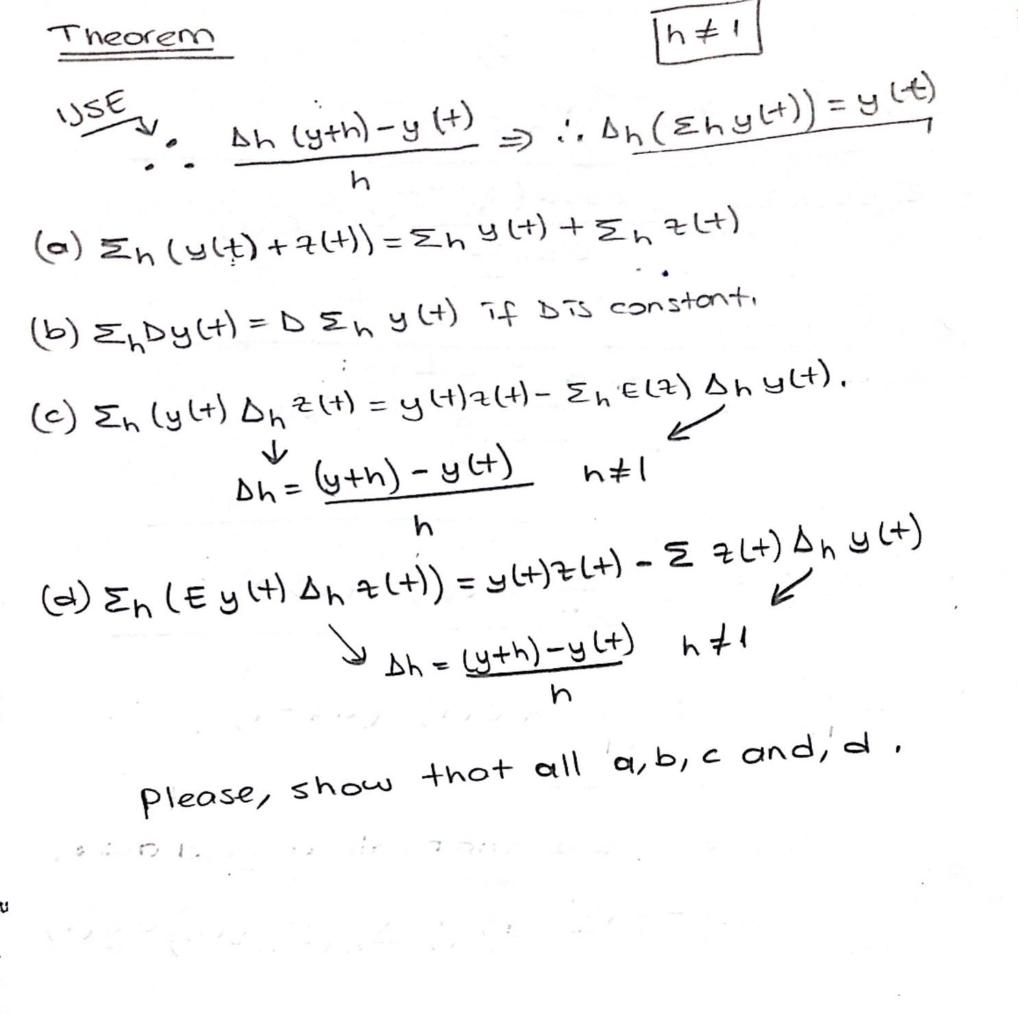 Theorem
h ≠ 1
USE
∴ Δh (y+h) - y(t) / h ⇒ ∴ Δh (Σh y(t)) = y(t)
(a) Σh (y(t) + z(t)) = Σh y(t) + Σh z(t)
(b) Σh Dy(t) = D Σh y(t) if D is constant.
(c) Σh (y(t) Δh z(t) = y(t)z(t) - Σh E(z) Δh y(t).
Δh = (y+h) - y(t) / h h≠1
(d) Σh (E y(t) Δh z(t)) = y(t)z(t) - Σ z(t) Δh y(t)
Δh = (y+h) - y(t) / h h≠1
Please, show that all a, b, c and, d.